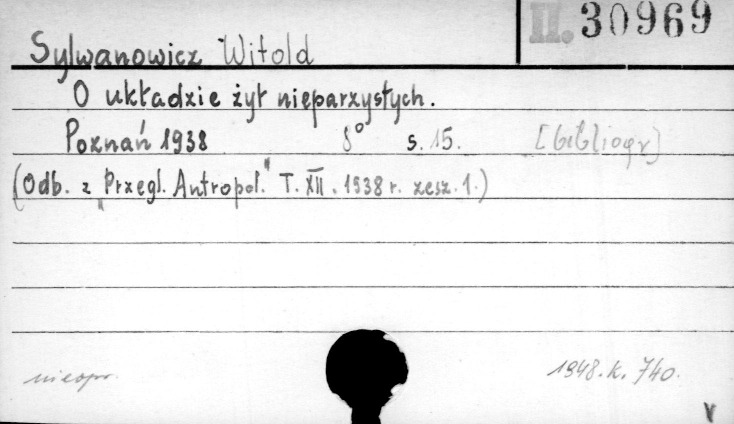 II. 30969
Sylwanowicz Witold
O układzie żył nieparzystych.
Poznań 1938 8° s. 15. [bibliogr]
(Odb. z „Przegl. Antropol." T. XII. 1938 r. zesz. 1.)
nieopr. 1948. K. 740.
V